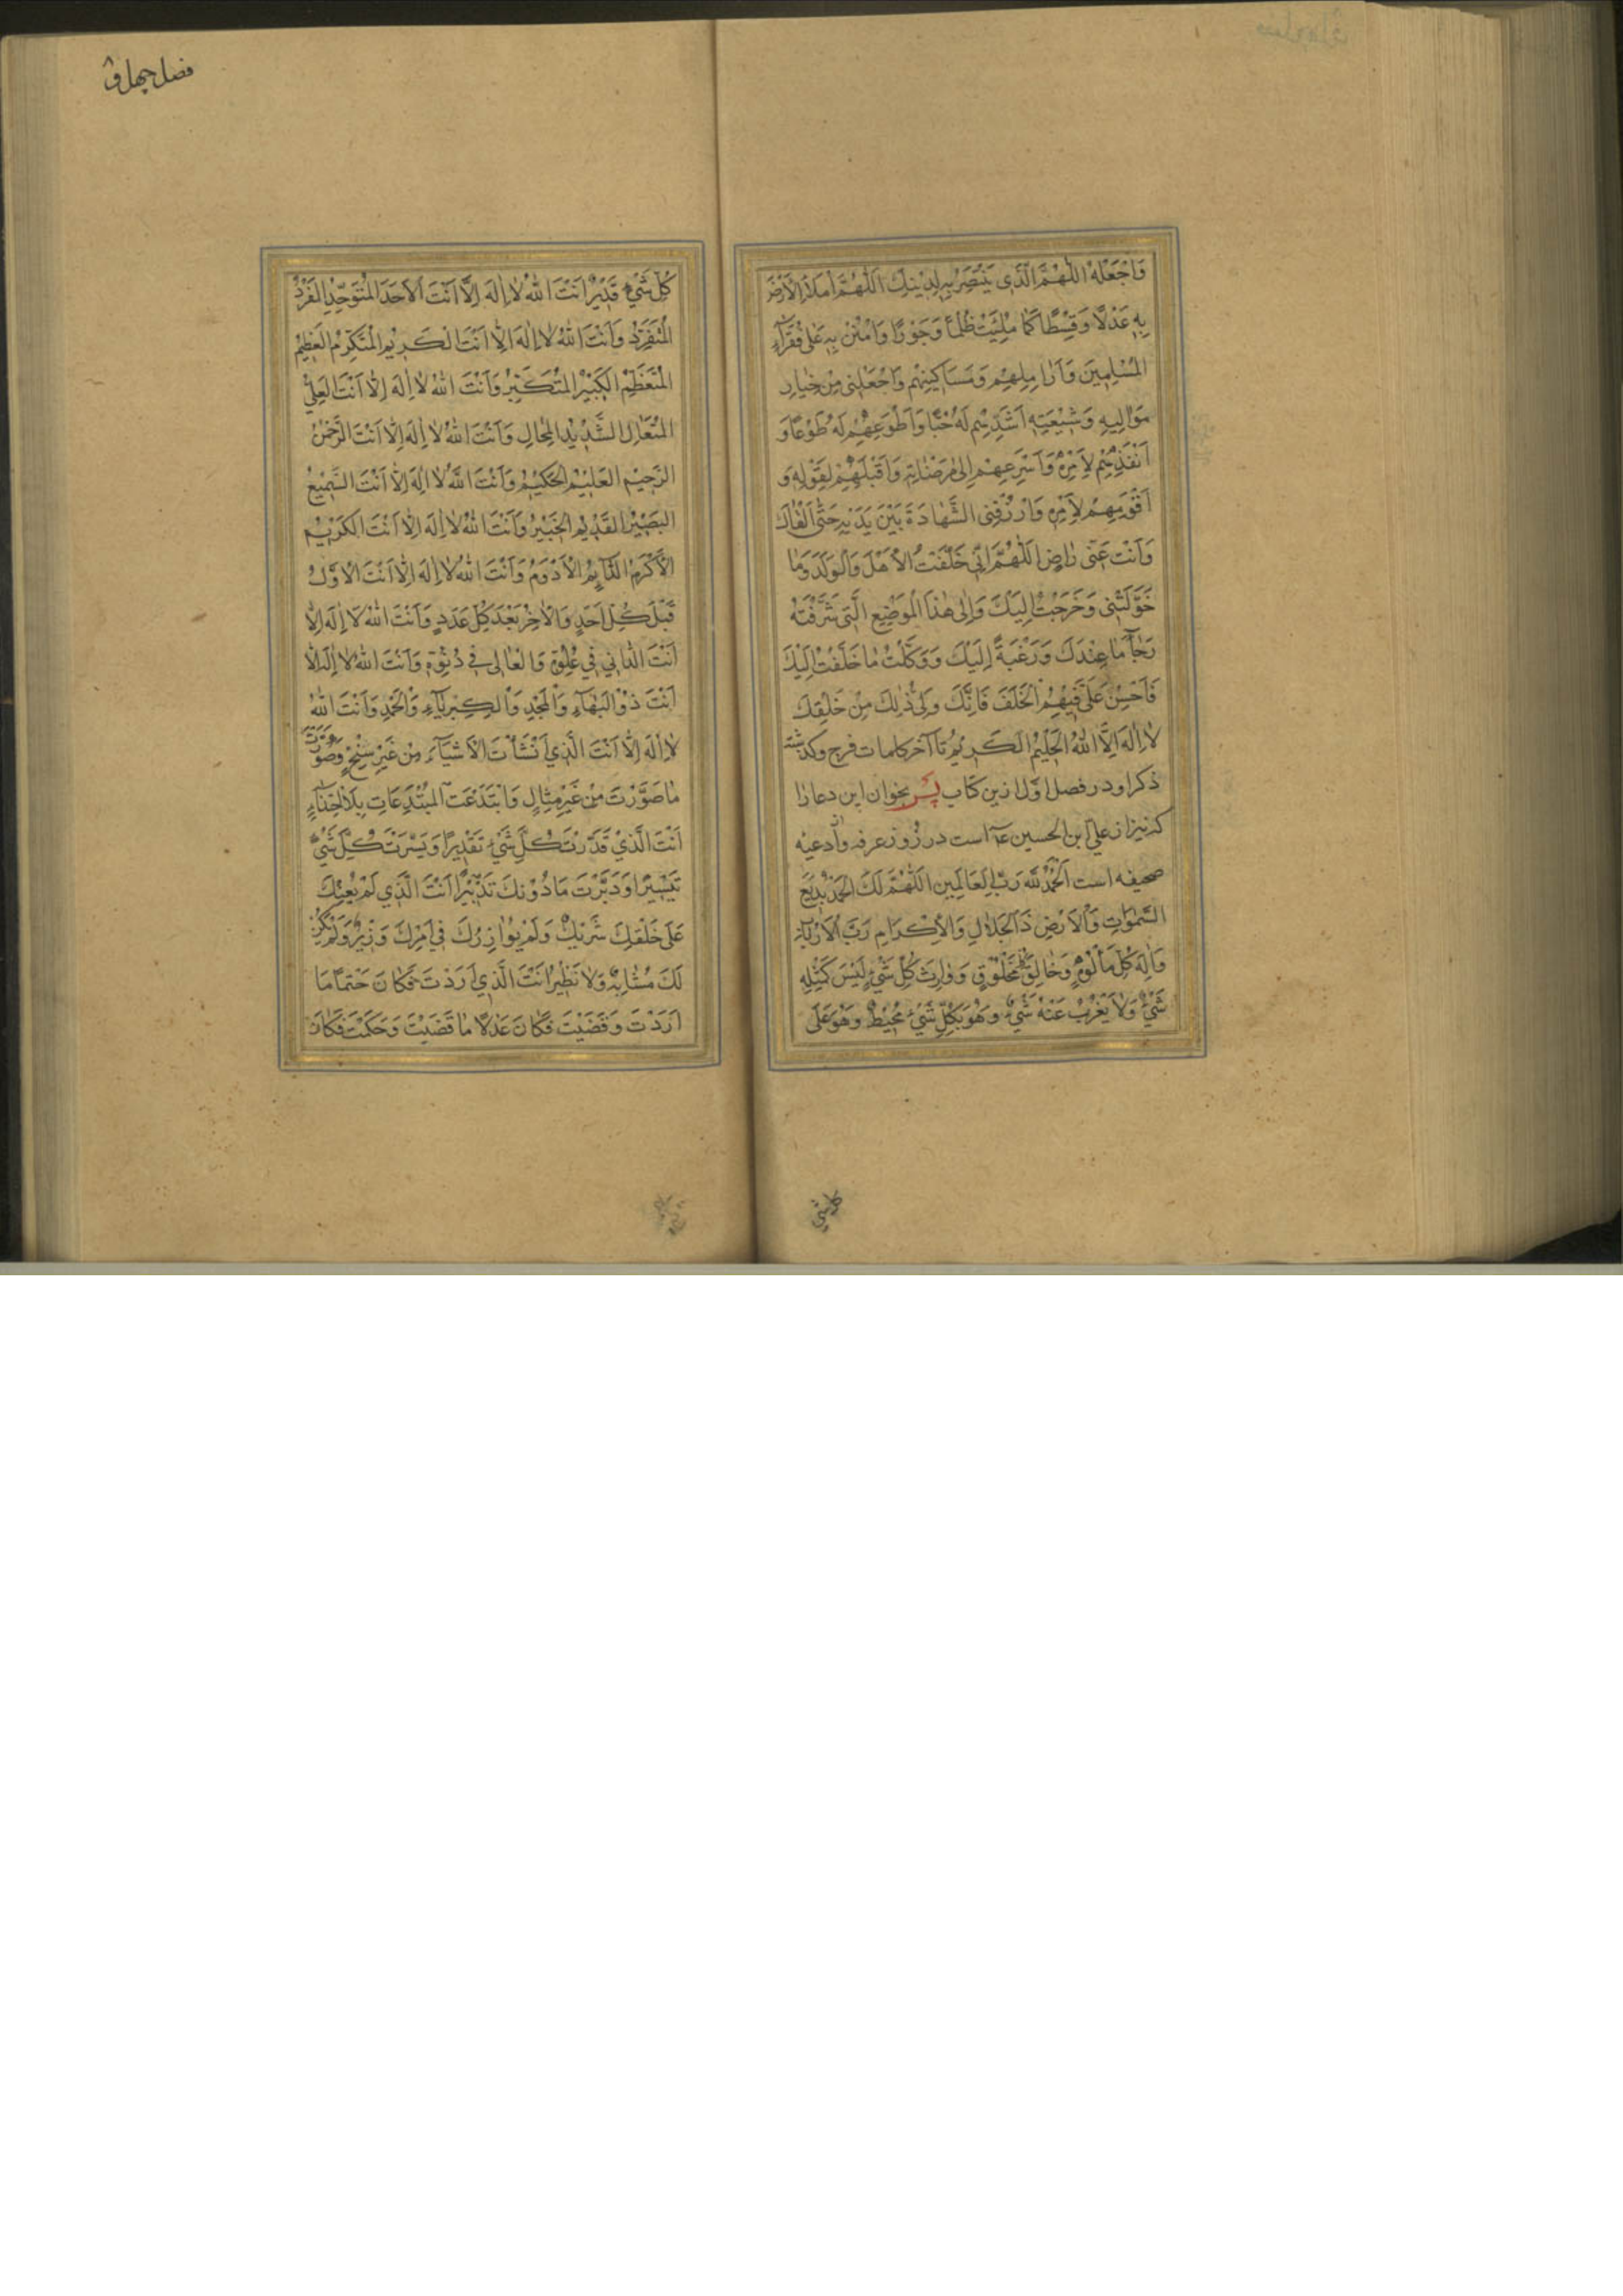 وَاجْعَلْهُ اللّٰهُمَّ الَّذِى يَنْتَصِرُ بِهِ لِدِينِكَ اَللّٰهُمَّ امْلَأْ الْاَرْضَ
بِهِ عَدْلًا وَقِسْطًا كَمٰا مُلِئَتْ ظُلْمًا وَجَوْرًا وَامْنُنْ بِهِ عَلٰى فُقَرٰآءِ
الْمُسْلِمِينَ وَاَرٰامِلِهِمْ وَمَسَاكِينِهِمْ وَاجْعَلْنِى مِنْ خِيٰارِ
مَوٰالِيهِ وَشِيعَتِهِ اَشَدِّهِمْ لَهُ حُبًّا وَاَطْوَعِهِمْ لَهُ طَوْعًا وَ
اَنْفَذِهِمْ لِاَمْرِهِ وَاَسْرَعِهِمْ اِلٰى مَرْضٰاتِهِ وَاَقْبَلِهِمْ لِقَوْلِهِ وَ
اَقْوَمِهِمْ لِاَمْرِهِ وَارْزُقْنِى الشَّهٰادَةَ بَيْنَ يَدَيْهِ حَتّٰى اَلْقٰاكَ
وَاَنْتَ عَنّى رٰاضٍ اَللّٰهُمَّ اِنّى خَلَّفْتُ الْاَهْلَ وَالْوَلَدَ وَمٰا
خَوَّلْتَنِى وَخَرَجْتُ اِلَيْكَ وَاِلٰى هٰذَا الْمَوْضِعِ الَّتِى شَرَّفْتَهُ
رَجٰآءَ مٰا عِنْدَكَ وَرَغْبَةً اِلَيْكَ وَوَكَّلْتُ مٰا خَلَّفْتُ اِلَيْكَ
فَاَحْسِنْ عَلَىَّ فِيهِمُ الْخَلَفَ فَاِنَّكَ وَلِىُّ ذٰلِكَ مِنْ خَلْقِكَ
لٰا اِلٰهَ اِلَّا اللّٰهُ الْحَلِيمُ الْكَرِيمُ تا آخر كلمات فرج وكذشته
ذكر او در فصل اوّل ازين كتاب پس بخوان اين دعا را
كه نيز از علىّ ابن الحسين ع است در روز عرفه واز ادعيه
صحيفه است اَلْحَمْدُ لِلّٰهِ رَبِّ الْعَالَمِينَ اَللّٰهُمَّ لَكَ الْحَمْدُ بَدِيعَ
السَّمٰوَاتِ وَالْاَرْضِ ذَا الْجَلٰالِ وَالْاِكْرَامِ رَبَّ الْاَرْبَابِ
وَاِلٰهَ كُلِّ مَأْلُوهٍ وَخٰالِقَ كُلِّ مَخْلُوقٍ وَوٰارِثَ كُلِّ شَىْءٍ لَيْسَ كَمِثْلِهِ
شَىْءٌ وَلٰا يَعْزُبُ عَنْهُ شَىْءٌ وَهُوَ بِكُلِّ شَىْءٍ مُحِيطٌ وَهُوَ عَلٰى
كل شئ
فصل چهل و
كُلِّ شَىْءٍ قَدِيرٌ اَنْتَ اللّٰهُ لٰا اِلٰهَ اِلَّا اَنْتَ الْاَحَدُ الْمُتَوَحِّدُ الْفَرْدُ
الْمُتَفَرِّدُ وَاَنْتَ اللّٰهُ لٰا اِلٰهَ اِلَّا اَنْتَ الْكَرِيمُ الْمُتَكَرِّمُ الْعَظِيمُ
الْمُتَعَظِّمُ الْكَبِيرُ الْمُتَكَبِّرُ وَاَنْتَ اللّٰهُ لٰا اِلٰهَ اِلَّا اَنْتَ الْعَلِىُّ
الْمُتَعَالِ الشَّدِيدُ الْمِحَالِ وَاَنْتَ اللّٰهُ لٰا اِلٰهَ اِلَّا اَنْتَ الرَّحْمٰنُ
الرَّحِيمُ الْعَلِيمُ الْحَكِيمُ وَاَنْتَ اللّٰهُ لٰا اِلٰهَ اِلَّا اَنْتَ السَّمِيعُ
الْبَصِيرُ الْقَدِيمُ الْخَبِيرُ وَاَنْتَ اللّٰهُ لٰا اِلٰهَ اِلَّا اَنْتَ الْكَرِيمُ
الْاَكْرَمُ الدَّآئِمُ الْاَدْوَمُ وَاَنْتَ اللّٰهُ لٰا اِلٰهَ اِلَّا اَنْتَ الْاَوَّلُ
قَبْلَ كُلِّ اَحَدٍ وَالْاٰخِرُ بَعْدَ كُلِّ عَدَدٍ وَاَنْتَ اللّٰهُ لٰا اِلٰهَ اِلَّا
اَنْتَ الدّٰانِى فِى عُلُوِّهِ وَالْعٰالِى فِى دُنُوِّهِ وَاَنْتَ اللّٰهُ لٰا اِلٰهَ اِلَّا
اَنْتَ ذُو الْبَهٰآءِ وَالْمَجْدِ وَالْكِبْرِيٰآءِ وَالْحَمْدِ وَاَنْتَ اللّٰهُ
لٰا اِلٰهَ اِلَّا اَنْتَ الَّذِى اَنْشَأْتَ الْاَشْيٰآءَ مِنْ غَيْرِ سِنْخٍ وَصَوَّرْتَ
مٰا صَوَّرْتَ مِنْ غَيْرِ مِثٰالٍ وَابْتَدَعْتَ الْمُبْتَدَعَاتِ بِلَا احْتِذٰآءٍ
اَنْتَ الَّذِى قَدَّرْتَ كُلَّ شَىْءٍ تَقْدِيرًا وَيَسَّرْتَ كُلَّ شَىْءٍ
تَيْسِيرًا وَدَبَّرْتَ مَا دُوْنَكَ تَدْبِيرًا اَنْتَ الَّذِى لَمْ يُعِنْكَ
عَلٰى خَلْقِكَ شَرِيكٌ وَلَمْ يُوٰازِرْكَ فِى اَمْرِكَ وَزِيرٌ وَلَمْ يَكُنْ
لَكَ مُشٰابِهٌ وَلٰا نَظِيرٌ اَنْتَ الَّذِى اَرَدْتَ فَكٰانَ حَتْمًا مَا
اَرَدْتَ وَقَضَيْتَ فَكٰانَ عَدْلًا مٰا قَضَيْتَ وَحَكَمْتَ فَكٰانَ